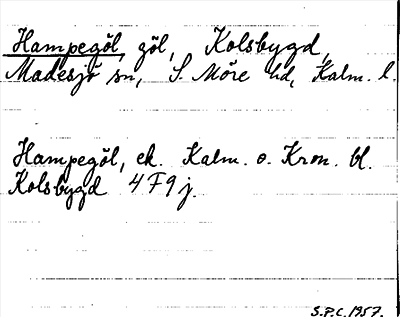 Hampegöl, göl, Kolsbygd,
Madesjö sn, S. Möre hd, Kalm. l.
Hampegöl, ek. Kalm. o. Kron. bl.
Kolsbygd 4F9j.
S.P.C. 1957.